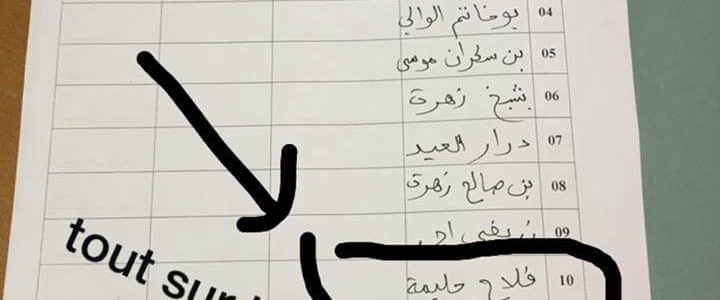 04 بوخاتم الوالي
05 بن سكران موسى
06 زهرة
07 درار العيد
08 بن صالح زهرة
09
10 فلاح حليمة
tout sur